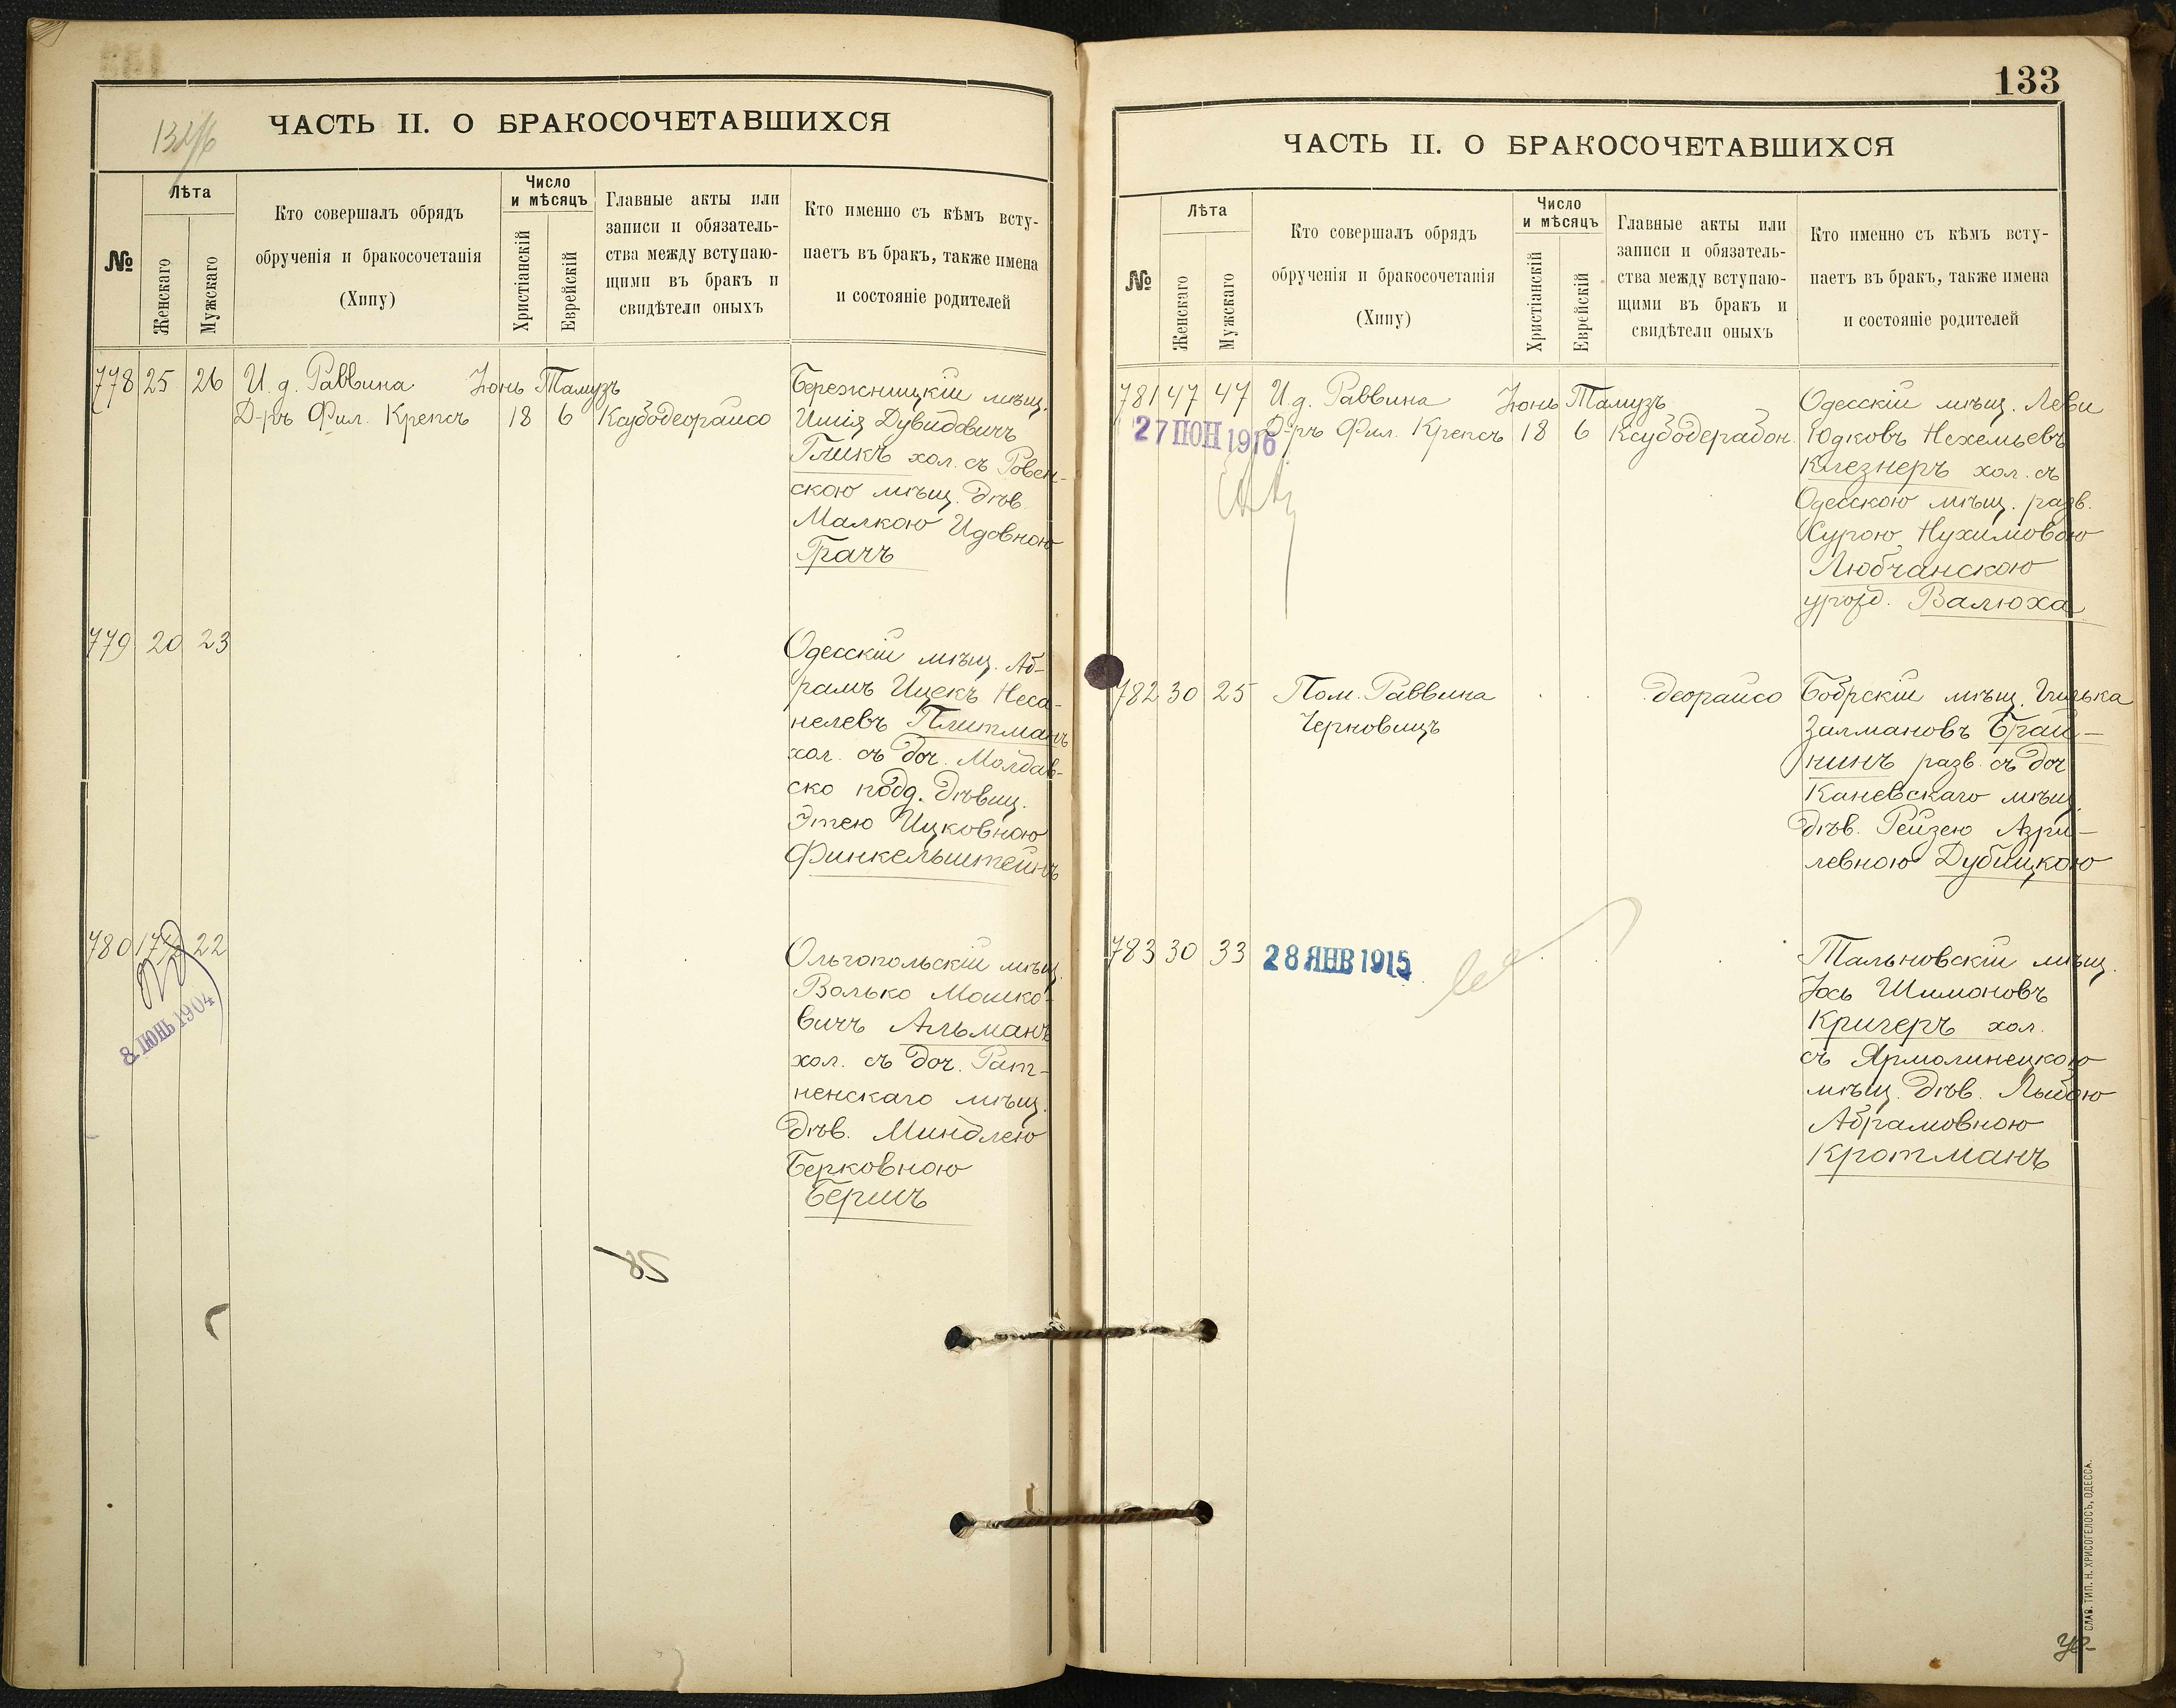 132/б
ЧАСТЬ II. О БРАКОСОЧЕТАВШИХСЯ
№
Лѣта
Женскаго
Мужскаго
Кто совершалъ обрядъ
обрученія и бракосочетанія
(Хипу)
Число
и мѣсяцъ
Христіанскій
Еврейскій
Главные акты или
записи и обязатель-
ства между вступаю-
щими въ бракъ и
свидѣтели оныхъ
Кто именно съ кѣмъ всту-
паетъ въ бракъ, также имена
и состояніе родителей
778 25 26 И. д. Раввина Іюнь Тамузъ
Д-ръ Фил. Крепсъ 18 6 Ксубодеорайсо
Бережницкій мѣщ.
Дувидовичъ
Гликъ хол. съ Ровен-
скою мѣщ. дѣв.
Малкою Идовною
Грачъ
779 20 23
Одесскій мѣщ. Аб-
рамъ Ицекъ Неса-
нелевъ Плитманъ
хол. съ доч. Молдав-
ско подд. дѣвиц.
Этею Ицковною
Финкельштейнъ
780 17½ 22
8 ІЮНЬ 1904
Ольгопольскій мѣщ.
Волько Мошко-
вичъ Альманъ
хол. съ доч. Рат-
ненскаго мѣщ.
дѣв. Миндлею
Берковною
Беришъ
133
ЧАСТЬ II. О БРАКОСОЧЕТАВШИХСЯ
№
Лѣта
Женскаго
Мужскаго
Кто совершалъ обрядъ
обрученія и бракосочетанія
(Хипу)
Число
и мѣсяцъ
Христіанскій
Еврейскій
Главные акты или
записи и обязатель-
ства между вступаю-
щими въ бракъ и
свидѣтели оныхъ
Кто именно съ кѣмъ всту-
паетъ въ бракъ, также имена
и состояніе родителей
781 47 47 И. д. Раввина Іюнь Тамузъ
Д-ръ Фил. Крепсъ 18 6 Ксубодерабон.
27 ІЮН 1916
Одесскій мѣщ. Леви
Юдковъ Нехемьевъ
Клезнеръ хол. съ
Одесскою мѣщ. разв.
Сурою Нухимовою
Любчанскою
урожд. Валюха
782 30 25 Пом. Раввина деорайсо
Черновицъ
Бобрскій мѣщ.
Залмановъ Брай-
нинъ разв. съ доч
Каневскаго мѣщ.
дѣв. Рейзею Азри-
левною Дубицкою
783 30 33
28 ЯНВ 1915
Тальновскій мѣщ.
Іось Шимоновъ
Кригеръ хол.
съ Ярмолинецкою
мѣщ. дѣв. Лыбою
Абрамовною
Кротманъ
СЛАВ. ТИП. Н. ХРИСОГЕЛОСЪ, ОДЕССА.